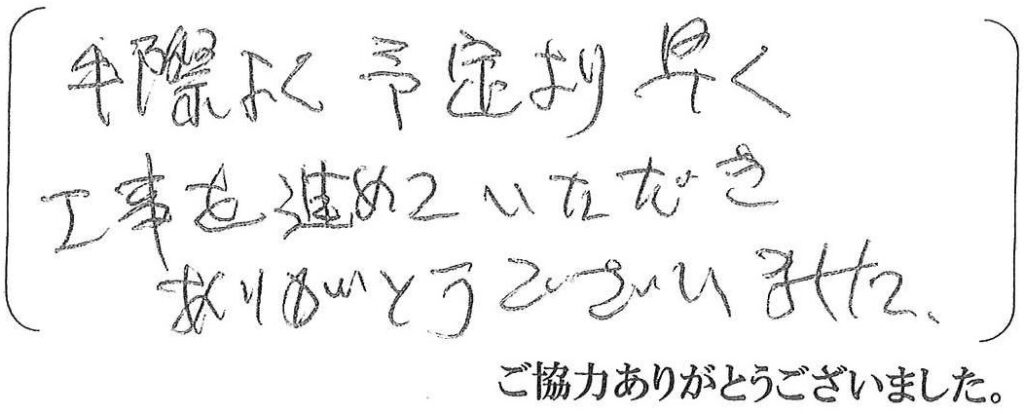 手際よく予定より早く
工事を進めていただき
ありがとうございました、
ご協力ありがとうございました。